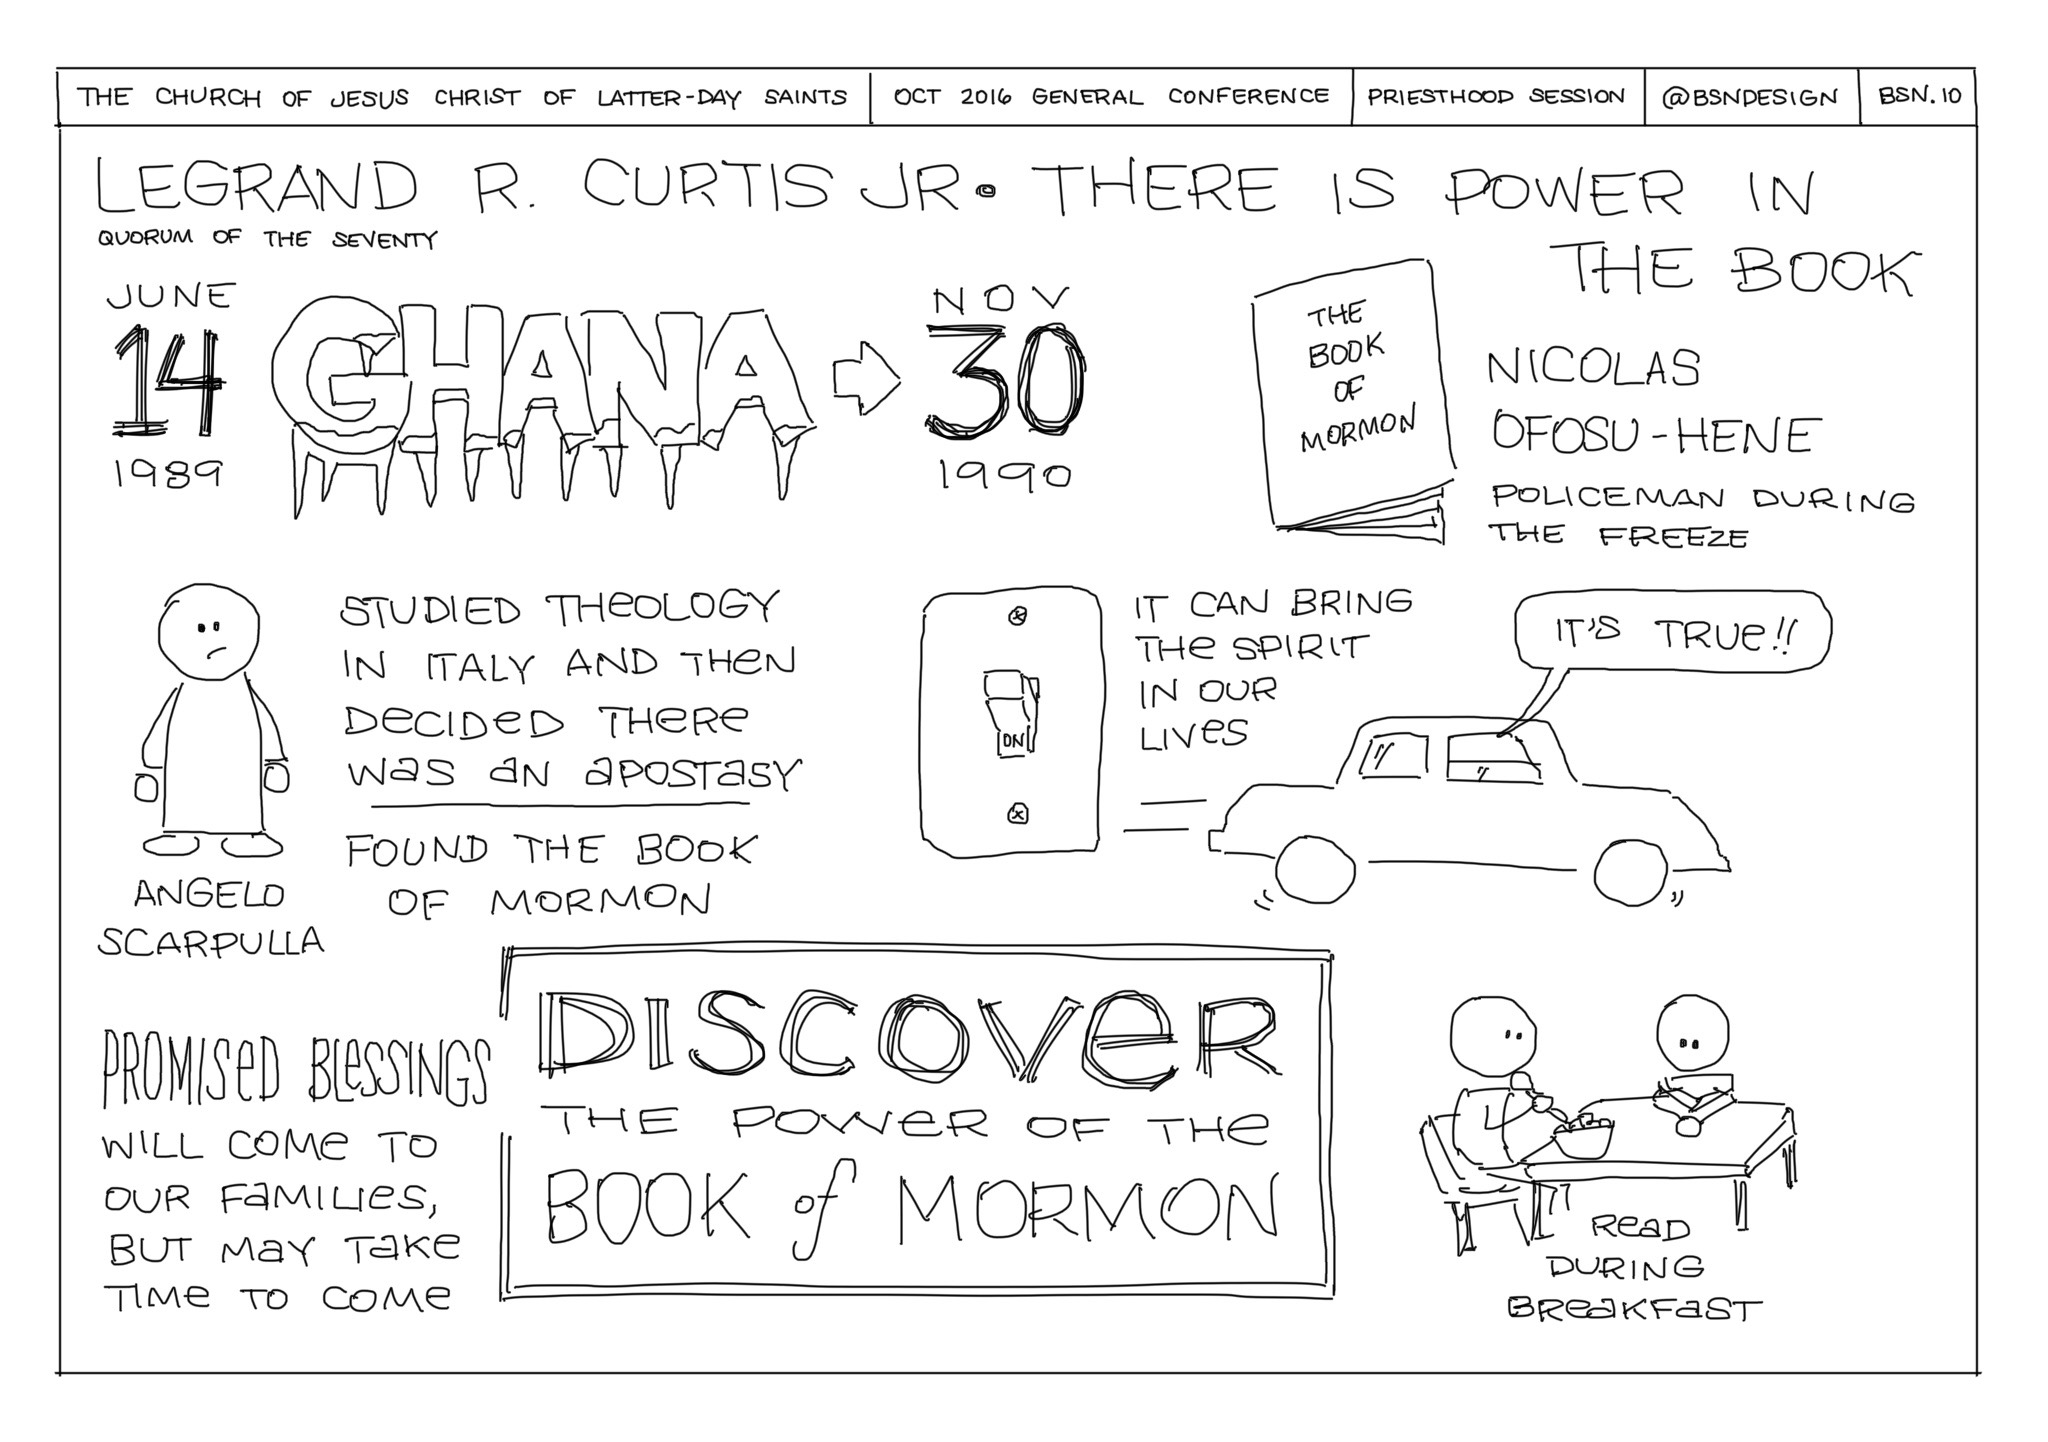 THE CHURCH OF JESUS CHRIST OF LATTER-DAY SAINTS
OCT 2016 GENERAL CONFERENCE
PRIESTHOOD SESSION
@BSNDESIGN
BSN.10
LEGRAND R. CURTIS JR. THERE IS POWER IN
THE BOOK
QUORUM OF THE SEVENTY
JUNE
14
1989
GHANA
NOV
30
1990
THE
BOOK
OF
MORMON
NICOLAS
OFOSU-HENE
POLICEMAN DURING
THE FREEZE
ANGELO
SCARPULLA
STUDIED THEOLOGY
IN ITALY AND THEN
DECIDED THERE
WAS AN APOSTASY
FOUND THE BOOK
OF MORMON
ON
IT CAN BRING
THE SPIRIT
IN OUR
LIVES
IT'S TRUE!!
PROMISED BLESSINGS
WILL COME TO
OUR FAMILIES,
BUT MAY TAKE
TIME TO COME
DISCOVER
THE POWER OF THE
BOOK of MORMON
READ
DURING
BREAKFAST